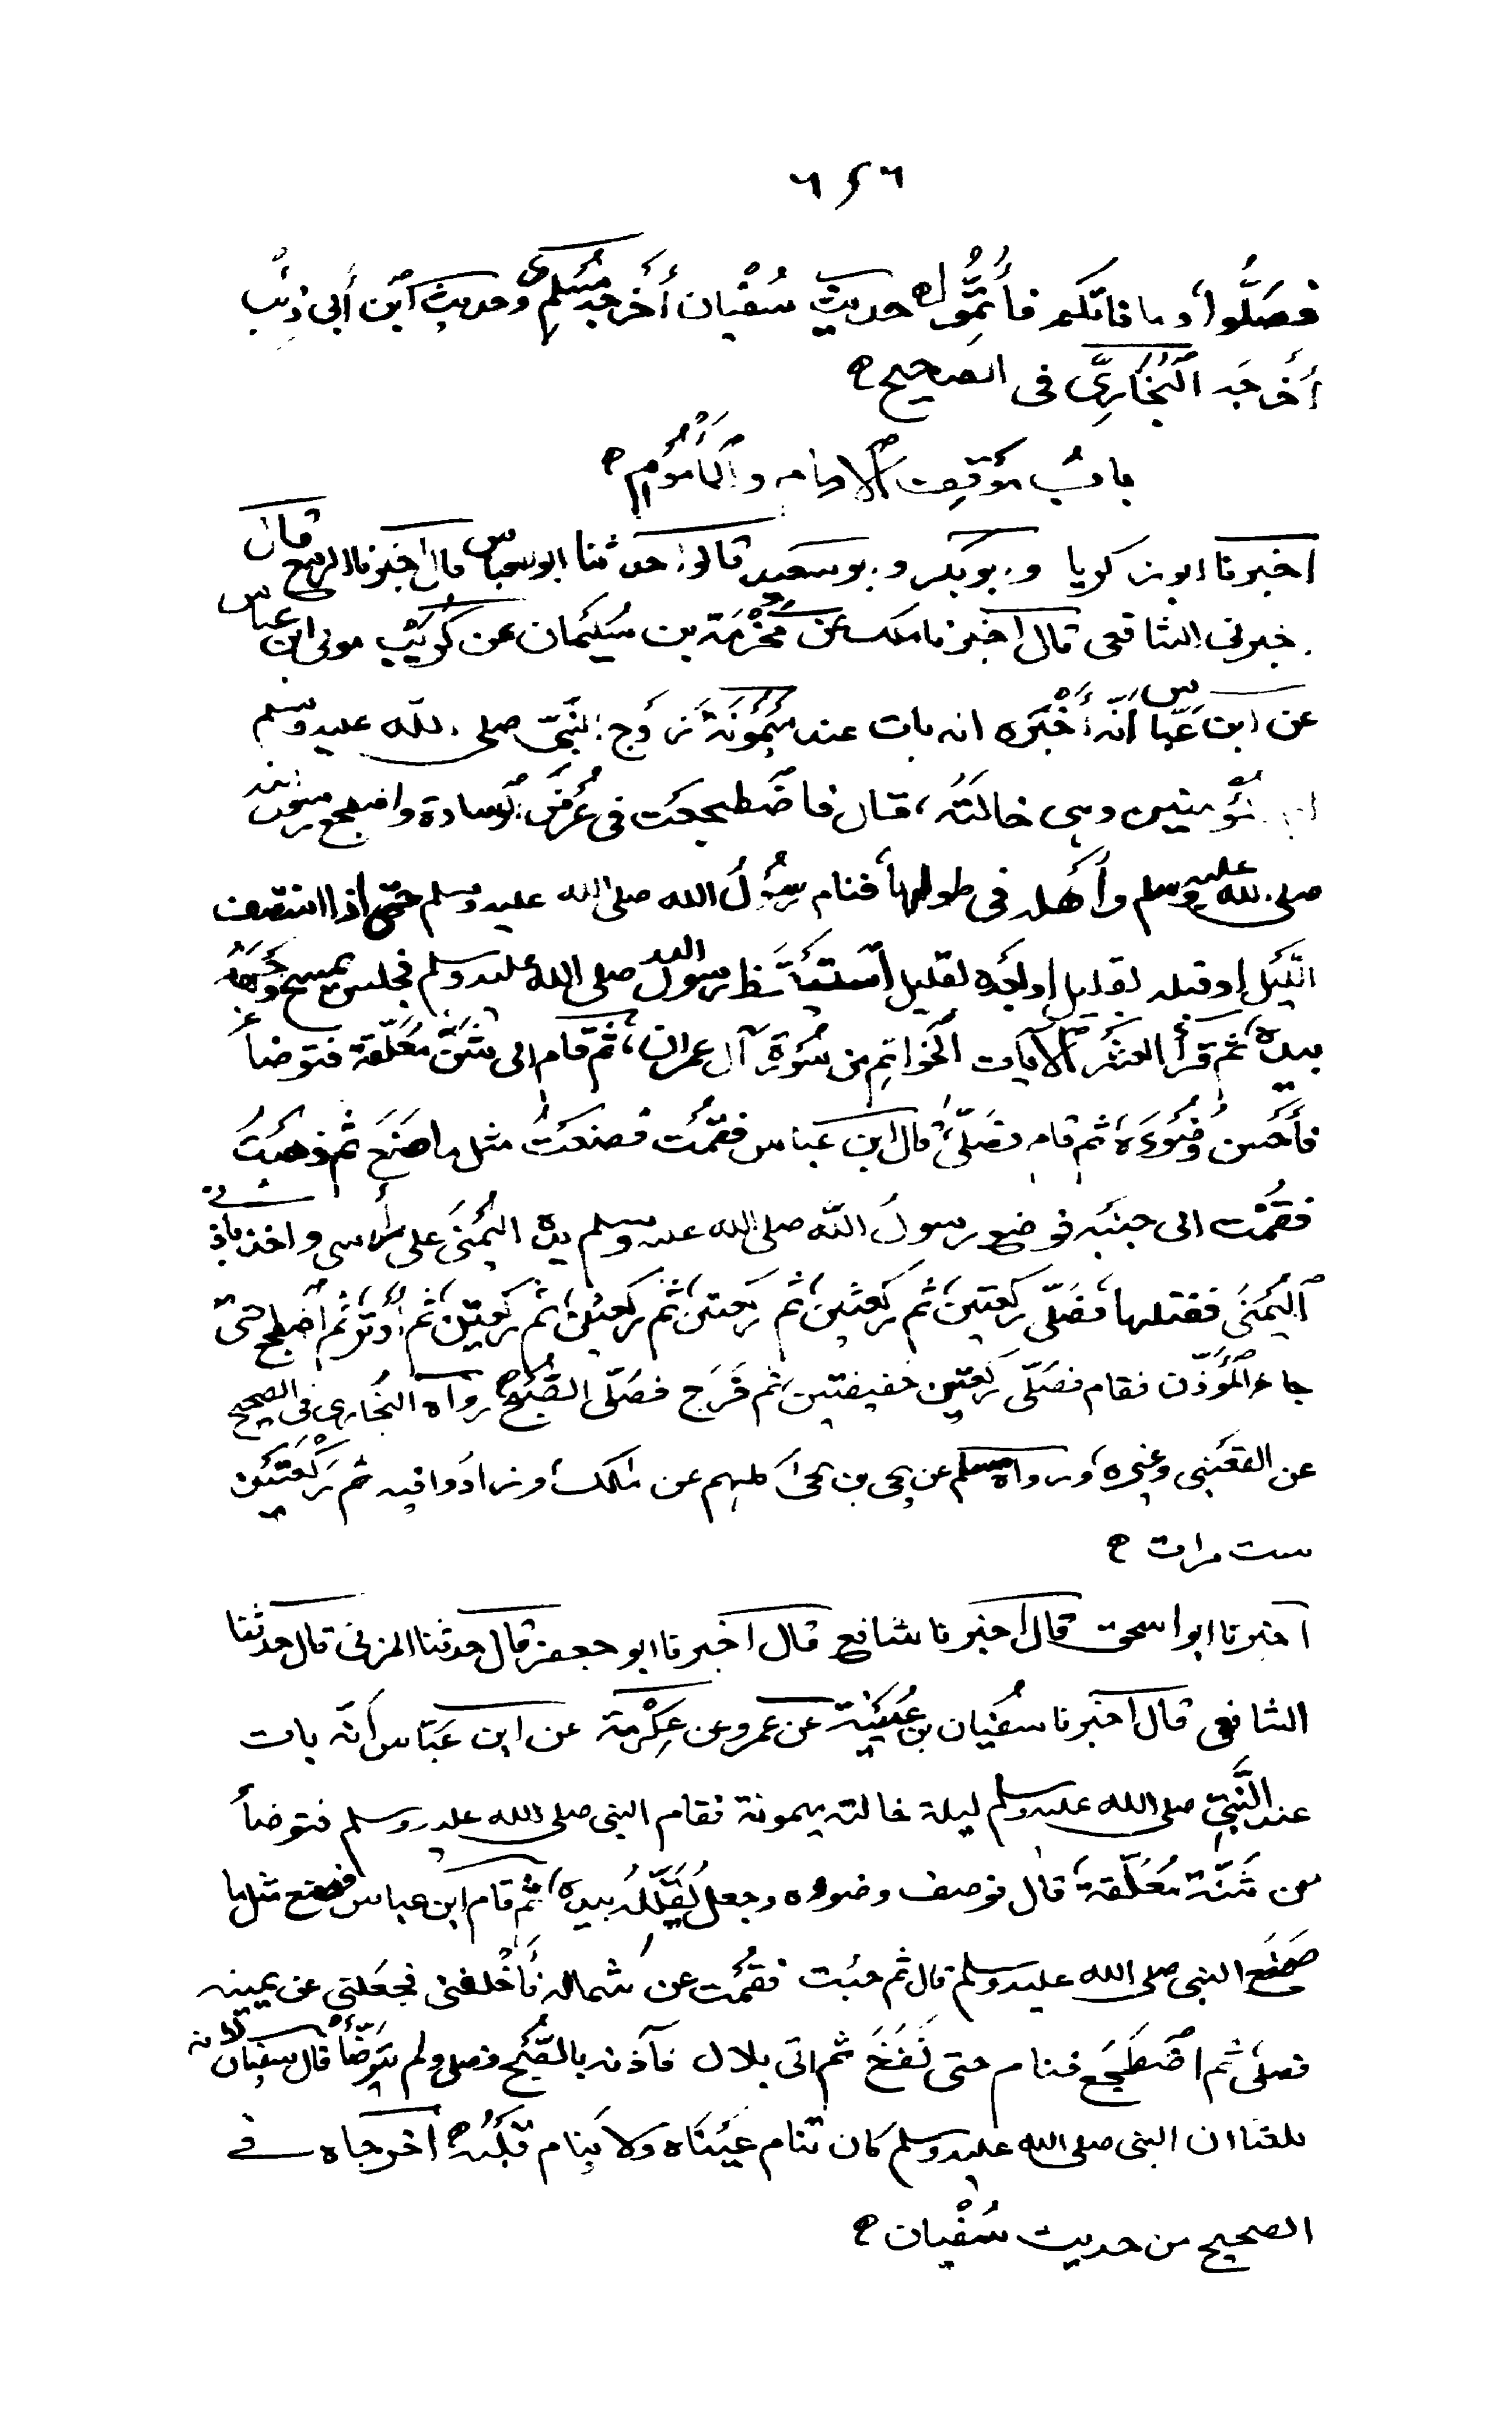 ٦٤٦
فصَلُّوا، وما فاتكم فأَتِمُّوا ه حديثُ سُفْيان أَخرجه مُسْلِم وحديث ٱبْن أَبي ذئب
أَخرجَه ٱلبُخَارِيّ فى الصحيح ه
بابُ مَوْقِف ٱلامام وٱلمأمُوم ه
اخبرنا ابو زكريا وابو بكر وابو سعيد قالوا حدثنا ابو العباس قال اخبرنا الربيع قال
اخبرنى الشافعى قال اخبرنا ملك عن مَخْرَمَة بن سُلَيْمان عن كُرَيْب مولى ابن عباس
عن ابن عَبّاس أنّه أَخْبَره انه بات عند مَيْمُونَة زَوْج النَّبىّ صلى الله عليه وسلم
ام المؤمنين وهى خالَتُه، قال فاضْطجعت فى عُرْض الوسادة واضطجع رسول الله
صلى الله عليه وسلم وأَهْله فى طولها، فنام رسُولُ الله صلى الله عليه وسلم حتى اذا انتصف
الَّليْل او قبله بقليل او بَعْده بقليل اسْتَيْقَظ رسول الله صلى الله عليه وسلم فجلس يمسح وَجْهَهُ
بيده، ثم قرأَ العَشْر ٱلآيات ٱلخَواتِم من سُورَة آل عمران، ثم قام الى شَنٍّ مُعَلَّقة فتوضأَ
فأَحْسن وُضُوءَهُ، ثم قام فصَلَّى، قال ابن عَباس فقُمْت فصنعتُ مثل ما صَنَعَ ثم ذهَبْتُ
فقُمْت الى جنبَه فوضع رسولُ الله صلى الله عليه وسلم يده اليُمنَى على رأْسى واخذ باذنى
ٱليُمنَى ففتلها، فصَلّى ركعتين، ثم ركعتين، ثم ركعتين، ثم ركعتين، ثم ركعتين، ثم أَوْتَر، ثم اضطجع حتىّ
جاءَ ٱلمُؤَذّن فقام فصَلّى ركعتين خفيفتين، ثم خَرَج فصَلّى الصُّبْح ه رواه البُخارى فى الصحيح
عن القعْنَبى وغيره، ورواه مسلم عن يحى بن يحى كلهم عن مٰلك، وزادُوا فيه ثم ركْعَتَيْن
ست مرات ه
اخبرنا ابو اسحق قال اخبرنا شافع قال اخبرنا ابو جعفر قال حدثنا المزنى قال حدثنا
الشافعى قال اخبرنا سُفْيان بن عُيَيْنَة عن عمرو عن عِكْرمة عن ابن عَبّاس أنّه بات
عند النَّبِىّ صلى الله عليه وسلم ليلة خالته ميمونة فقام النبى صلى الله عليه وسلم فتوضأَ
من شَنّة مُعَلَّقة، قال فوصف وضوءه وجعل يُقَلّلُه بيده، ثم قام ابن عباس فصنع مثل ما
صَنع النبى صلى الله عليه وسلم قال ثم جئت فقُمْت عن شماله فأَخْلفنى فجعَلنى عن يمينه
فصلّى ثم اضْطَجَع فنام حتى نَفَخَ ثم اتى بلال فآذنه بالصُّبْح فصلى ولم يتوَضّأْ، قال سفيان لانه
بلغنا ان النبى صلى الله عليه وسلم كان تنام عَيْنَاه ولا يَنام قلْبُه ه اخرجاه فى
الصحيح من حديث سُفْيان ه